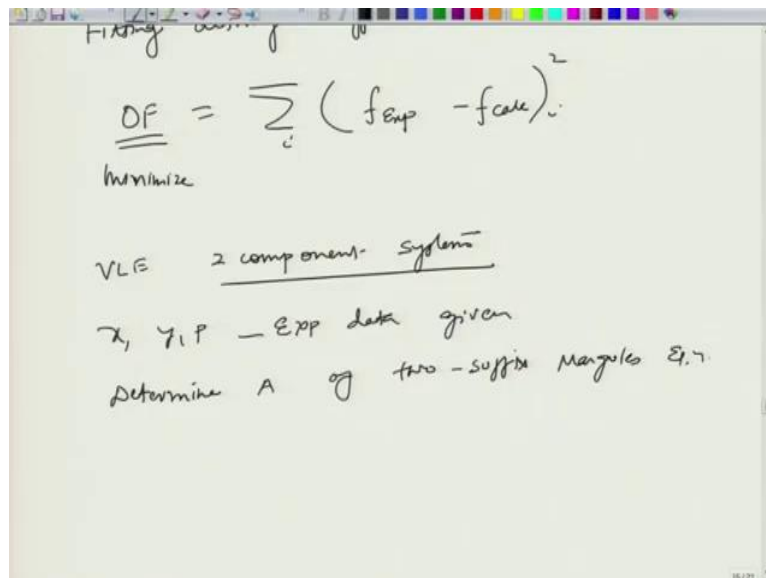 Fitting
OF = Σ_i (f_Exp - f_calc)_i^2
minimize
VLE 2 component systems
x, y, P - Exp data given
Determine A of two-suffix Margules Eq.n.